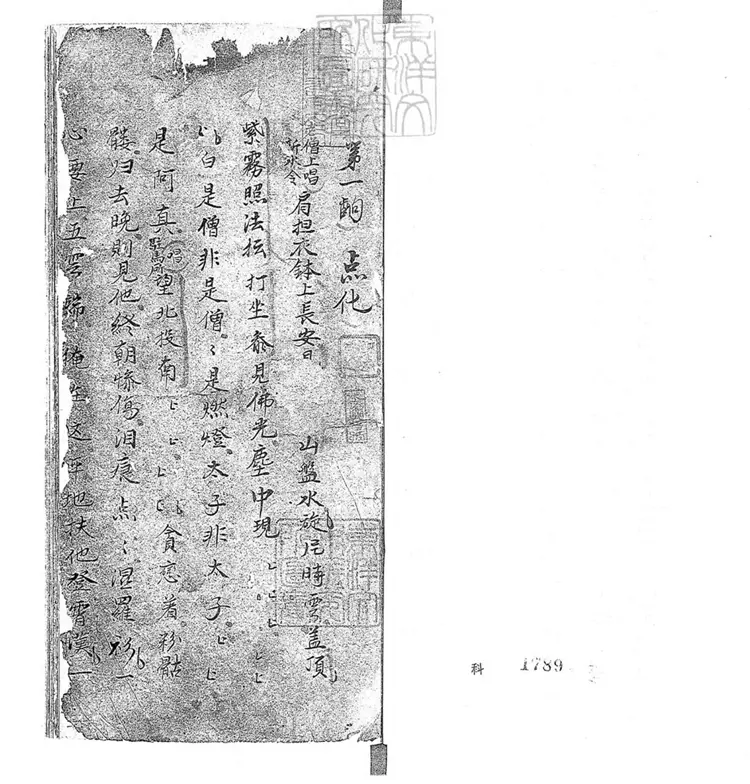 第一齣 点化
僧上唱 新水令 肩担衣鉢上長安 山盤水旋 時雲盖頂
紫霧照法坛 打坐叅見佛光塵中現
白 是僧非是僧〻是燃燈太子非太子
是阿真 唱 駐馬 望北投南 貪恋着 骷
髏归去晚則見他終朝 傷泪痕点〻湿羅 一
心要上五雲端 这 地扶他登霄漢一
東洋文
科 1789